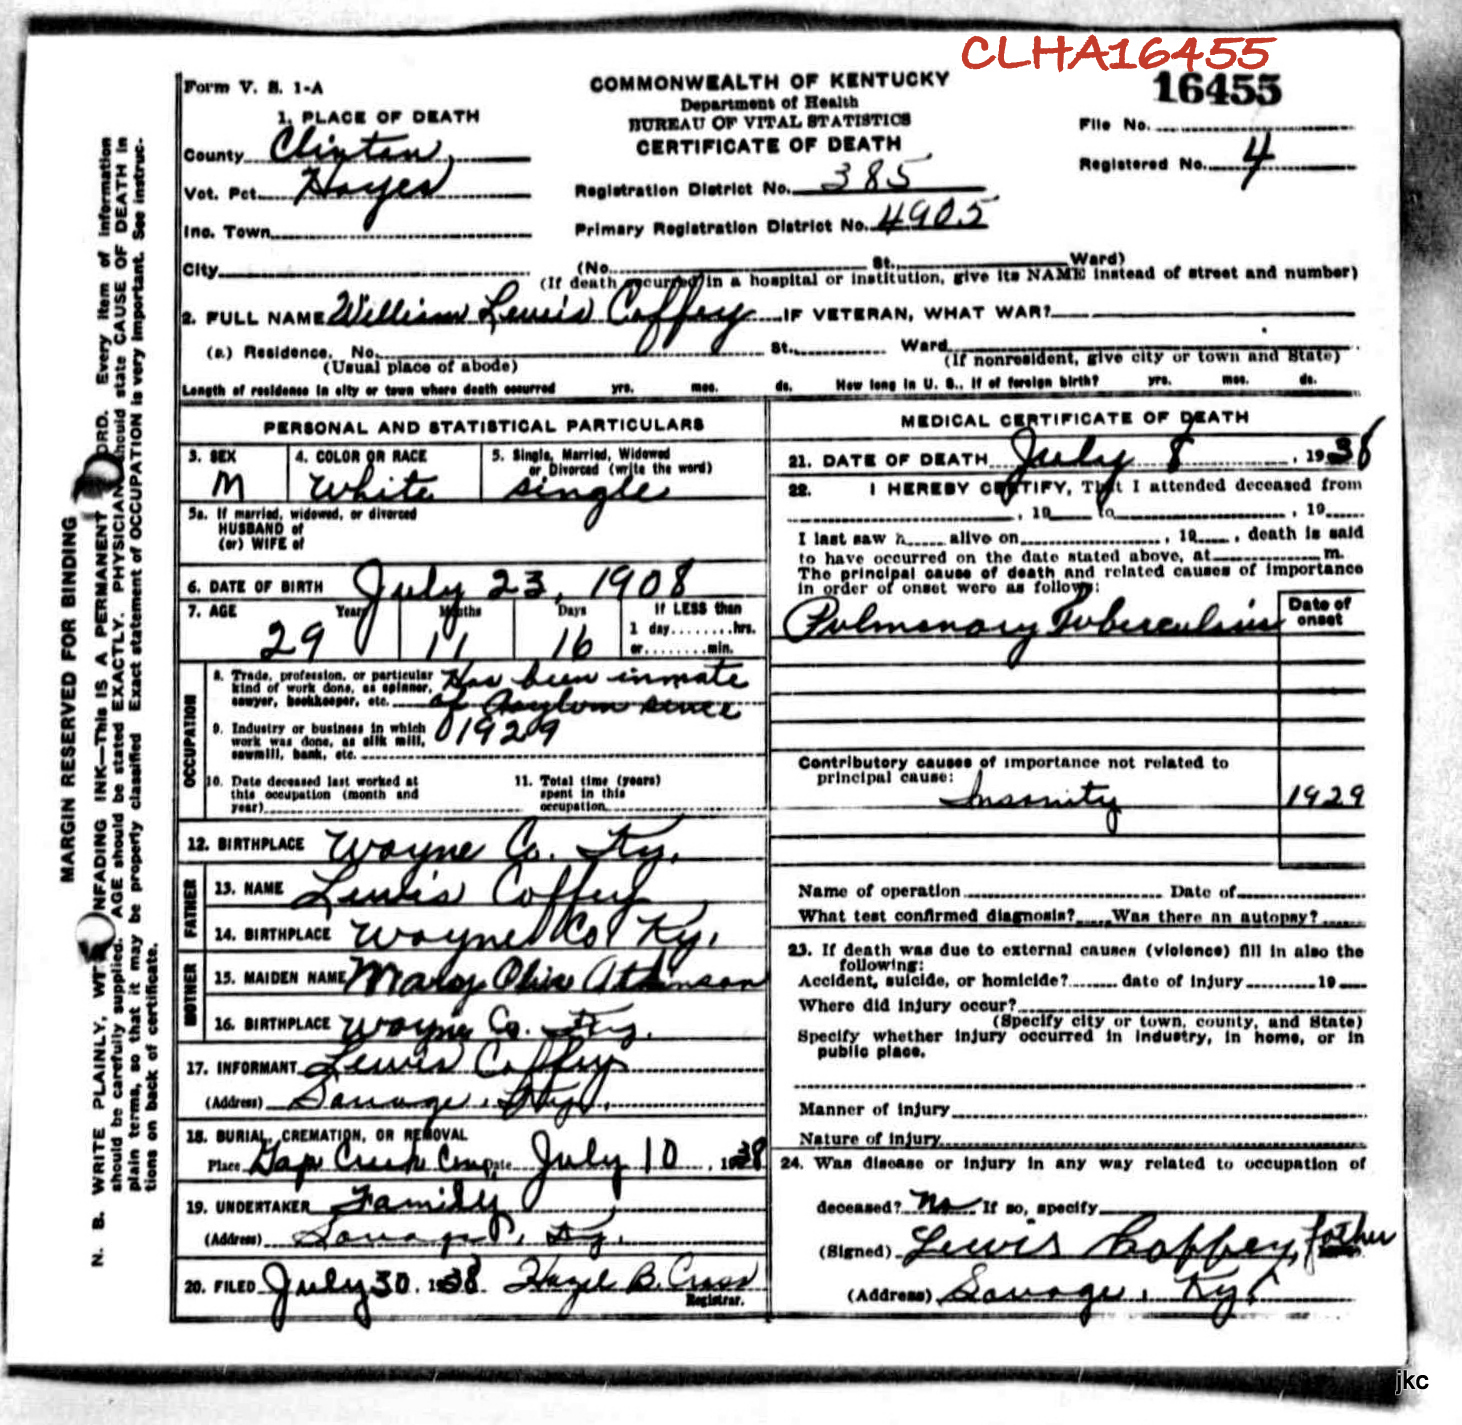 CLHA16455
16455
Form V. S. 1-A
COMMONWEALTH OF KENTUCKY
Department of Health
BUREAU OF VITAL STATISTICS
CERTIFICATE OF DEATH
File No.
Registered No. 4
1. PLACE OF DEATH
County Clinton
Vot. Pct. Hayes
Inc. Town
City
Registration District No. 385
Primary Registration District No. 4905
(No. St. Ward)
(If death occurred in a hospital or institution, give its NAME instead of street and number)
2. FULL NAME William Lewis Coffey IF VETERAN, WHAT WAR?
(a.) Residence. No. St. Ward
(Usual place of abode) (If nonresident, give city or town and State)
Length of residence in city or town where death occurred yrs. mos. ds. How long in U. S., if of foreign birth? yrs. mos. ds.
PERSONAL AND STATISTICAL PARTICULARS
3. SEX 4. COLOR OR RACE 5. Single, Married, Widowed
or Divorced (write the word)
M White single
5a. If married, widowed, or divorced
HUSBAND of
(or) WIFE of
6. DATE OF BIRTH July 23, 1908
7. AGE Years Months Days If LESS than
1 day........hrs.
29 11 16 or........min.
OCCUPATION
8. Trade, profession, or particular
kind of work done, as spinner,
sawyer, bookkeeper, etc.
Has been inmate
of Asylum since
1929
9. Industry or business in which
work was done, as silk mill,
sawmill, bank, etc.
10. Date deceased last worked at
this occupation (month and
year)
11. Total time (years)
spent in this
occupation
12. BIRTHPLACE Wayne Co. Ky.
FATHER
13. NAME Lewis Coffey
14. BIRTHPLACE Wayne Co Ky.
MOTHER
15. MAIDEN NAME Mary Olive Atkinson
16. BIRTHPLACE Wayne Co. Ky.
17. INFORMANT Lewis Coffey
(Address) Savage, Ky.
18. BURIAL, CREMATION, OR REMOVAL
Place Gap Creek Cem Date July 10, 1938
19. UNDERTAKER Family
(Address) Savage, Ky.
20. FILED July 30, 1938 Hazel B. Cross
Registrar.
MEDICAL CERTIFICATE OF DEATH
21. DATE OF DEATH July 8, 1938
22. I HEREBY CERTIFY, That I attended deceased from
, 19 to , 19
I last saw h alive on , 19 , death is said
to have occurred on the date stated above, at m.
The principal cause of death and related causes of importance
in order of onset were as follows:
Date of
onset
Pulmonary Tuberculosis
Contributory causes of importance not related to
principal cause:
Insanity 1929
Name of operation Date of
What test confirmed diagnosis? Was there an autopsy?
23. If death was due to external causes (violence) fill in also the
following:
Accident, suicide, or homicide? date of injury 19
Where did injury occur?
(Specify city or town, county, and State)
Specify whether injury occurred in industry, in home, or in
public place.
Manner of injury
Nature of injury
24. Was disease or injury in any way related to occupation of
deceased? No If so, specify
(Signed) Lewis Coffey, father
(Address) Savage, Ky.
MARGIN RESERVED FOR BINDING
N. B. WRITE PLAINLY, WITH UNFADING INK—THIS IS A PERMANENT RECORD. Every item of information
should be carefully supplied. AGE should be stated EXACTLY. PHYSICIANS should state CAUSE OF DEATH in
plain terms, so that it may be properly classified. Exact statement of OCCUPATION is very important. See instruc-
tions on back of certificate.
jkc